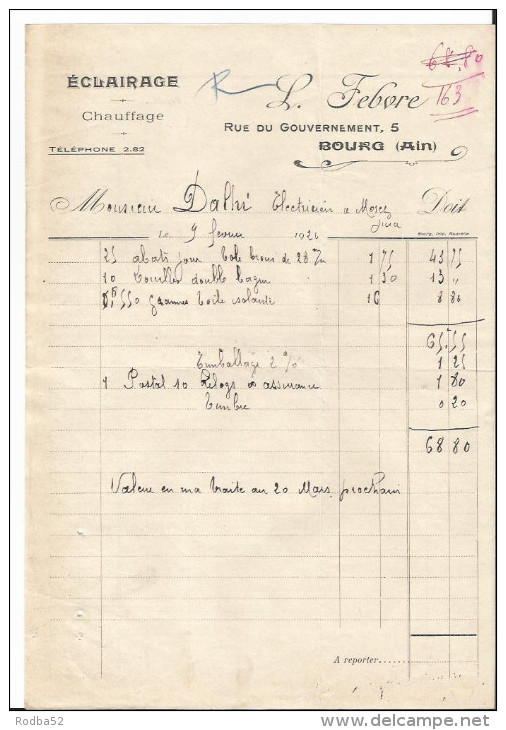 68.80
163
ÉCLAIRAGE
Chauffage
TÉLÉPHONE 2.82
L. Febvre
RUE DU GOUVERNEMENT, 5
BOURG (Ain)
Monsieur Électricien a Morez Doit
Jura
Le 9 février 192
25 abat jour tole de 28 1 75 43 75
10 douilles double bague 1 30 13 "
550 grammes toile isolante 16 8 80
65.55
Emballage 2 % 1 25
1 Postal 10 Kilogs assurance 1 80
Timbre 0 20
68 80
Valeur en ma traite au 20 Mars prochain
A reporter
Rodba52
www.delcampe.net